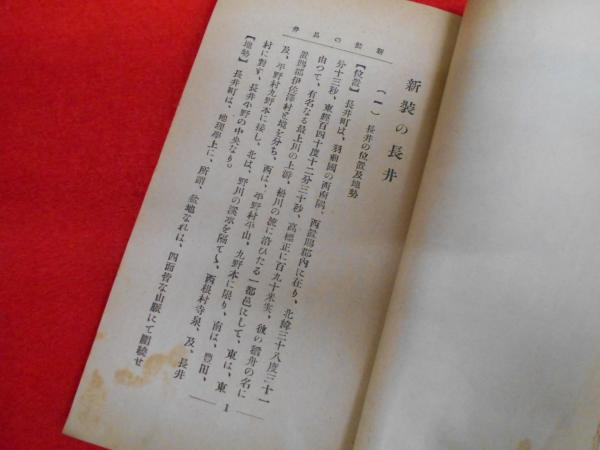 新裝の長井
新裝の長井
（一）　長井の位置及地勢
【位置】　長井町は、羽前國の西南隅、西置賜郡内に在り、北緯三十八度三十一
分十三秒、東經百四十度十二分三十秒、高標正に百九十米突、彼の稻舟の名に
由つて、有名なる最上川の上游、松川の流に沿ひたる一都邑にして、東は、東
置賜郡伊佐澤村と境を分ち、西は、平野村平山、九野本に限り、南は、豐田、
及、平野村九野本に接し、北は、野川の溪水を隔てゝ、西根村寺泉、及、長井
村に對す、長井平野の中央なり。
【地勢】　長井町は、地理學上に、所謂、盆地なれは、四面皆な山脈にて圍繞せ
1